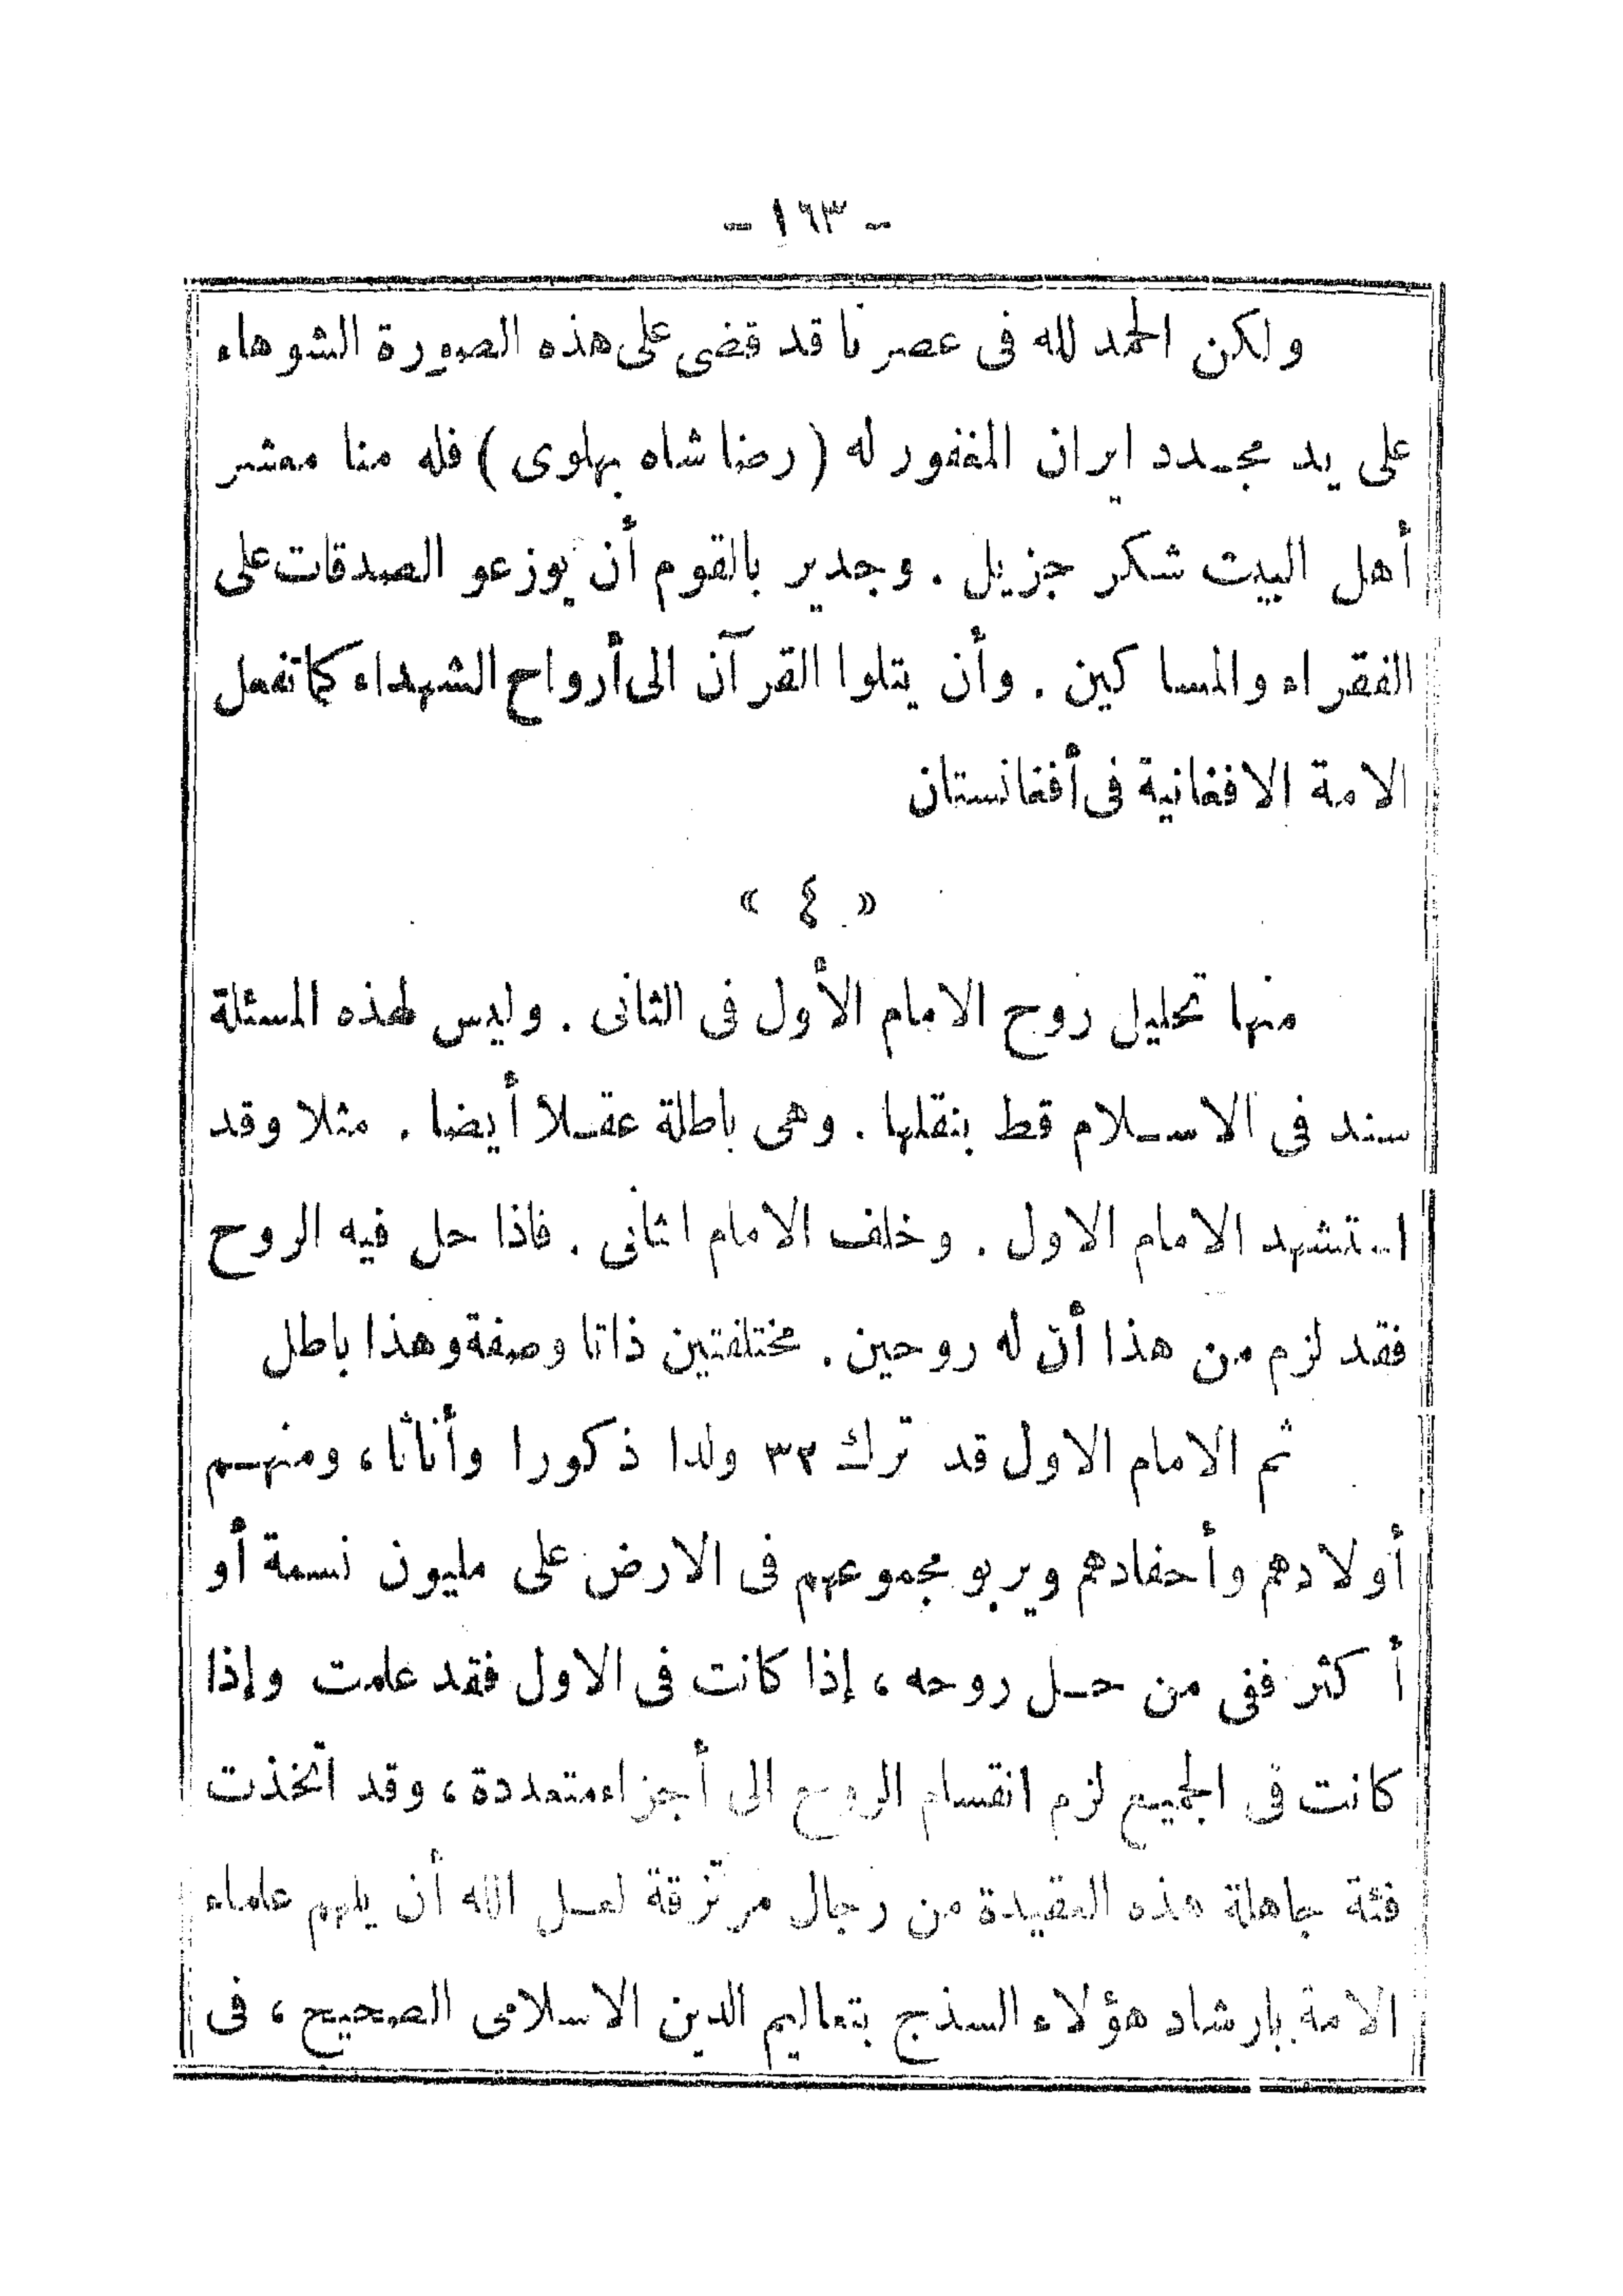 - ١٦٣ -
ولكن الحمد لله فى عصرنا قد قضى على هذه الصورة الشوهاء
على يد مجـدد ايران المغفور له ( رضا شاه بهلوى ) فله منا معشر
أهل البيت شكر جزيل . وجدير بالقوم أن يوزعو الصدقات على
الفقراء والمساكين . وأن يتلوا القرآن الى أرواح الشهداء كما تفعل
الامة الافغانية فى أفغانستان
« ٤ »
منها تحليل روح الامام الأول فى الثانى . وليس لهذه المسئلة
سند فى الاسـلام قط بنقلها . وهى باطلة عقـلا أيضا . مثلا وقد
استشهد الامام الاول . وخلف الامام اثانى . فاذا حل فيه الروح
فقد لزم من هذا أن له روحين . مختلفتين ذاتا وصفة وهذا باطل
ثم الامام الاول قد ترك ٣٣ ولدا ذكورا وأناثا ، ومنهـم
أولادهم وأحفادهم ويربو مجموعهم فى الارض على مليون نسمة أو
أكثر ففى من حـل روحه ، إذا كانت فى الاول فقد علمت وإذا
كانت فى الجميـع لزم انقسام الروح الى أجزاء متعددة ، وقد اتخذت
فئة جاهلة هذه العقيدة من رجال مرتزقة لعـل الله أن يلهم علماء
الامة بارشاد هؤلاء السذج بتعاليم الدين الاسلامى الصحيح ، فى